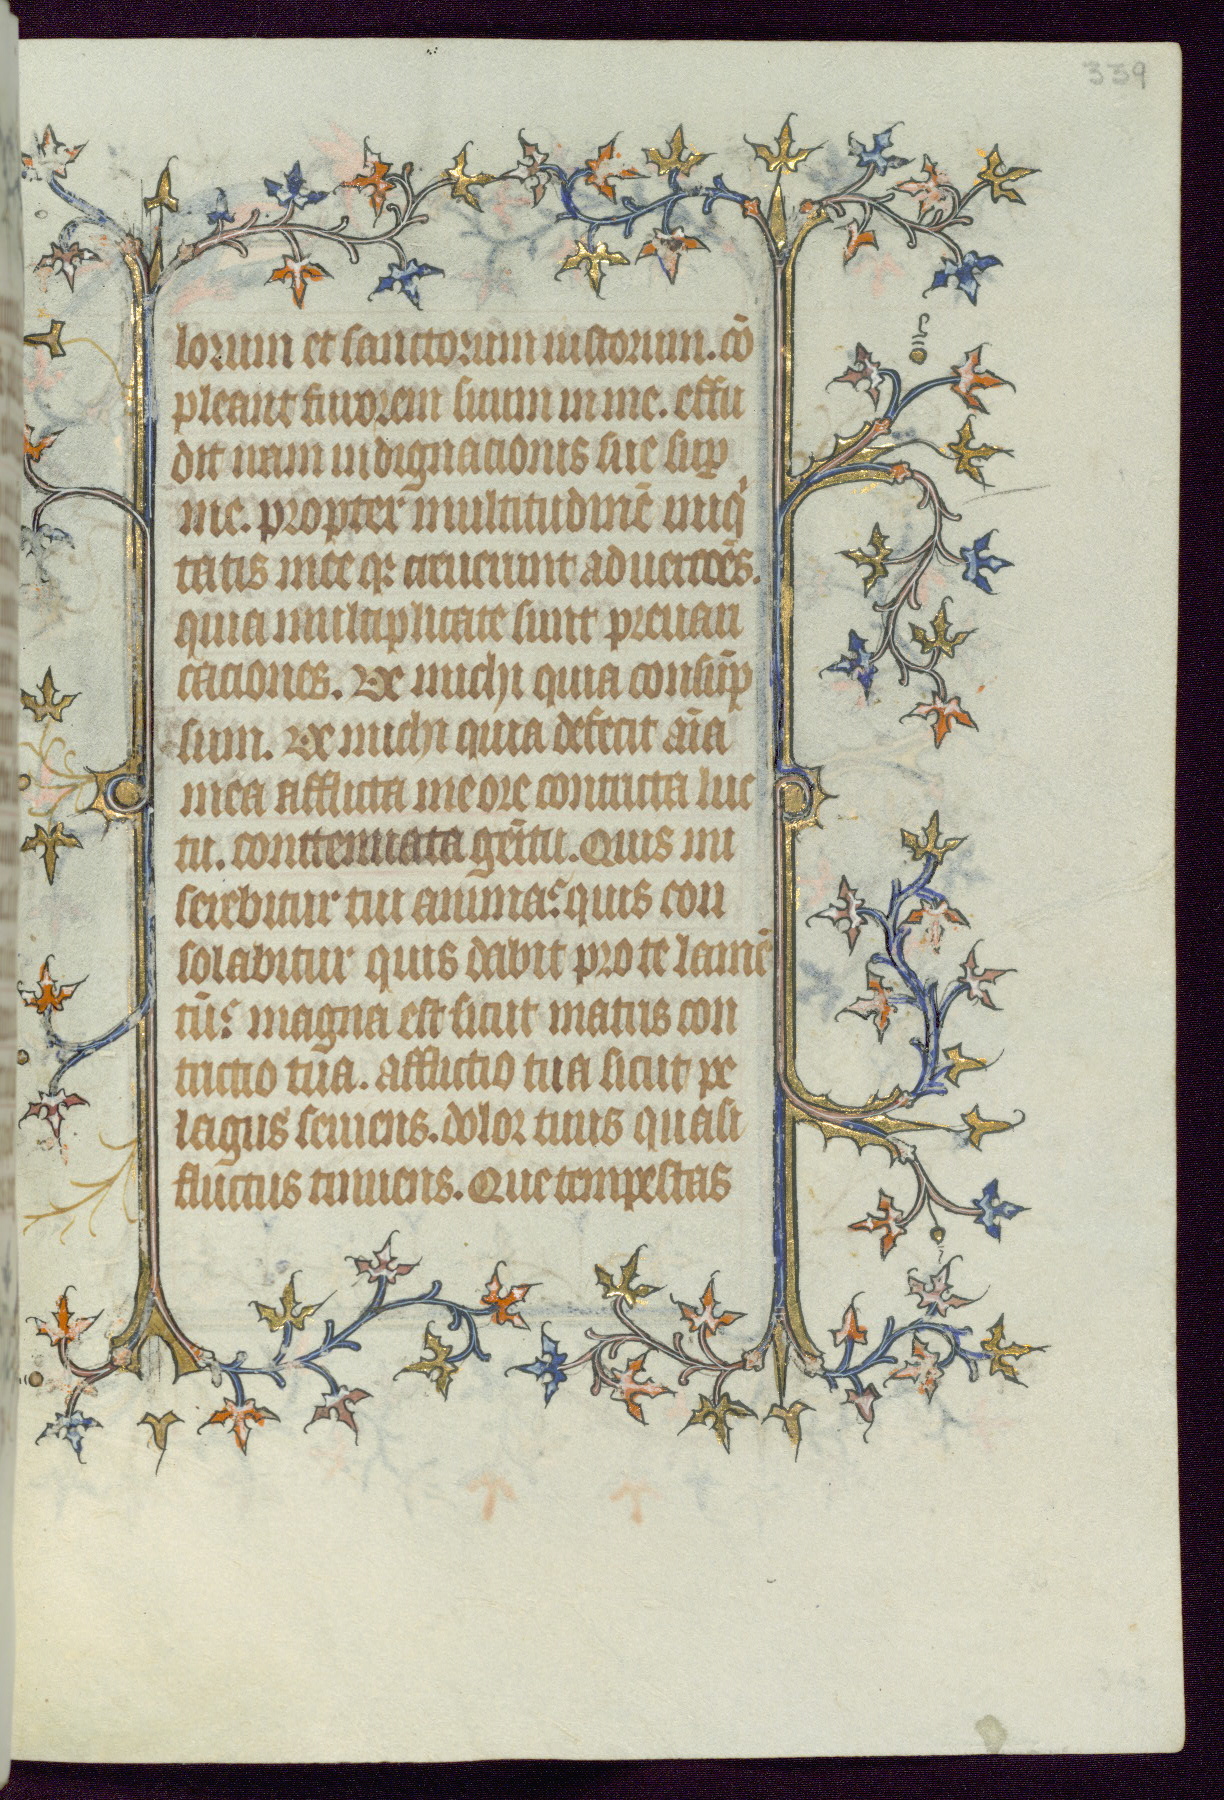 339
lorum et sanctorum iustorum. cō
pleant furorem suum in me. effu
dit iram indignacionis sue suꝑ
me. propter multitudinē iniq
tatis mee qꝫ creuerunt aduerc̄oēs.
quia multiplicate sunt preuari
caciones. Ve michi quia consūp
sum. ve michi quia defecit aīa
mea afflicta meore contricta luc
tu. conttenuata gēitu. Quis mi
serebitur tui anima? quis con
solabitur quis dabit pro te lamē
tū? magna est sicut matris con
tricio tua. afflictio tua sicut pe
lagus seuiens. dolor tuus quasi
fluctus tumens. Que tempestas